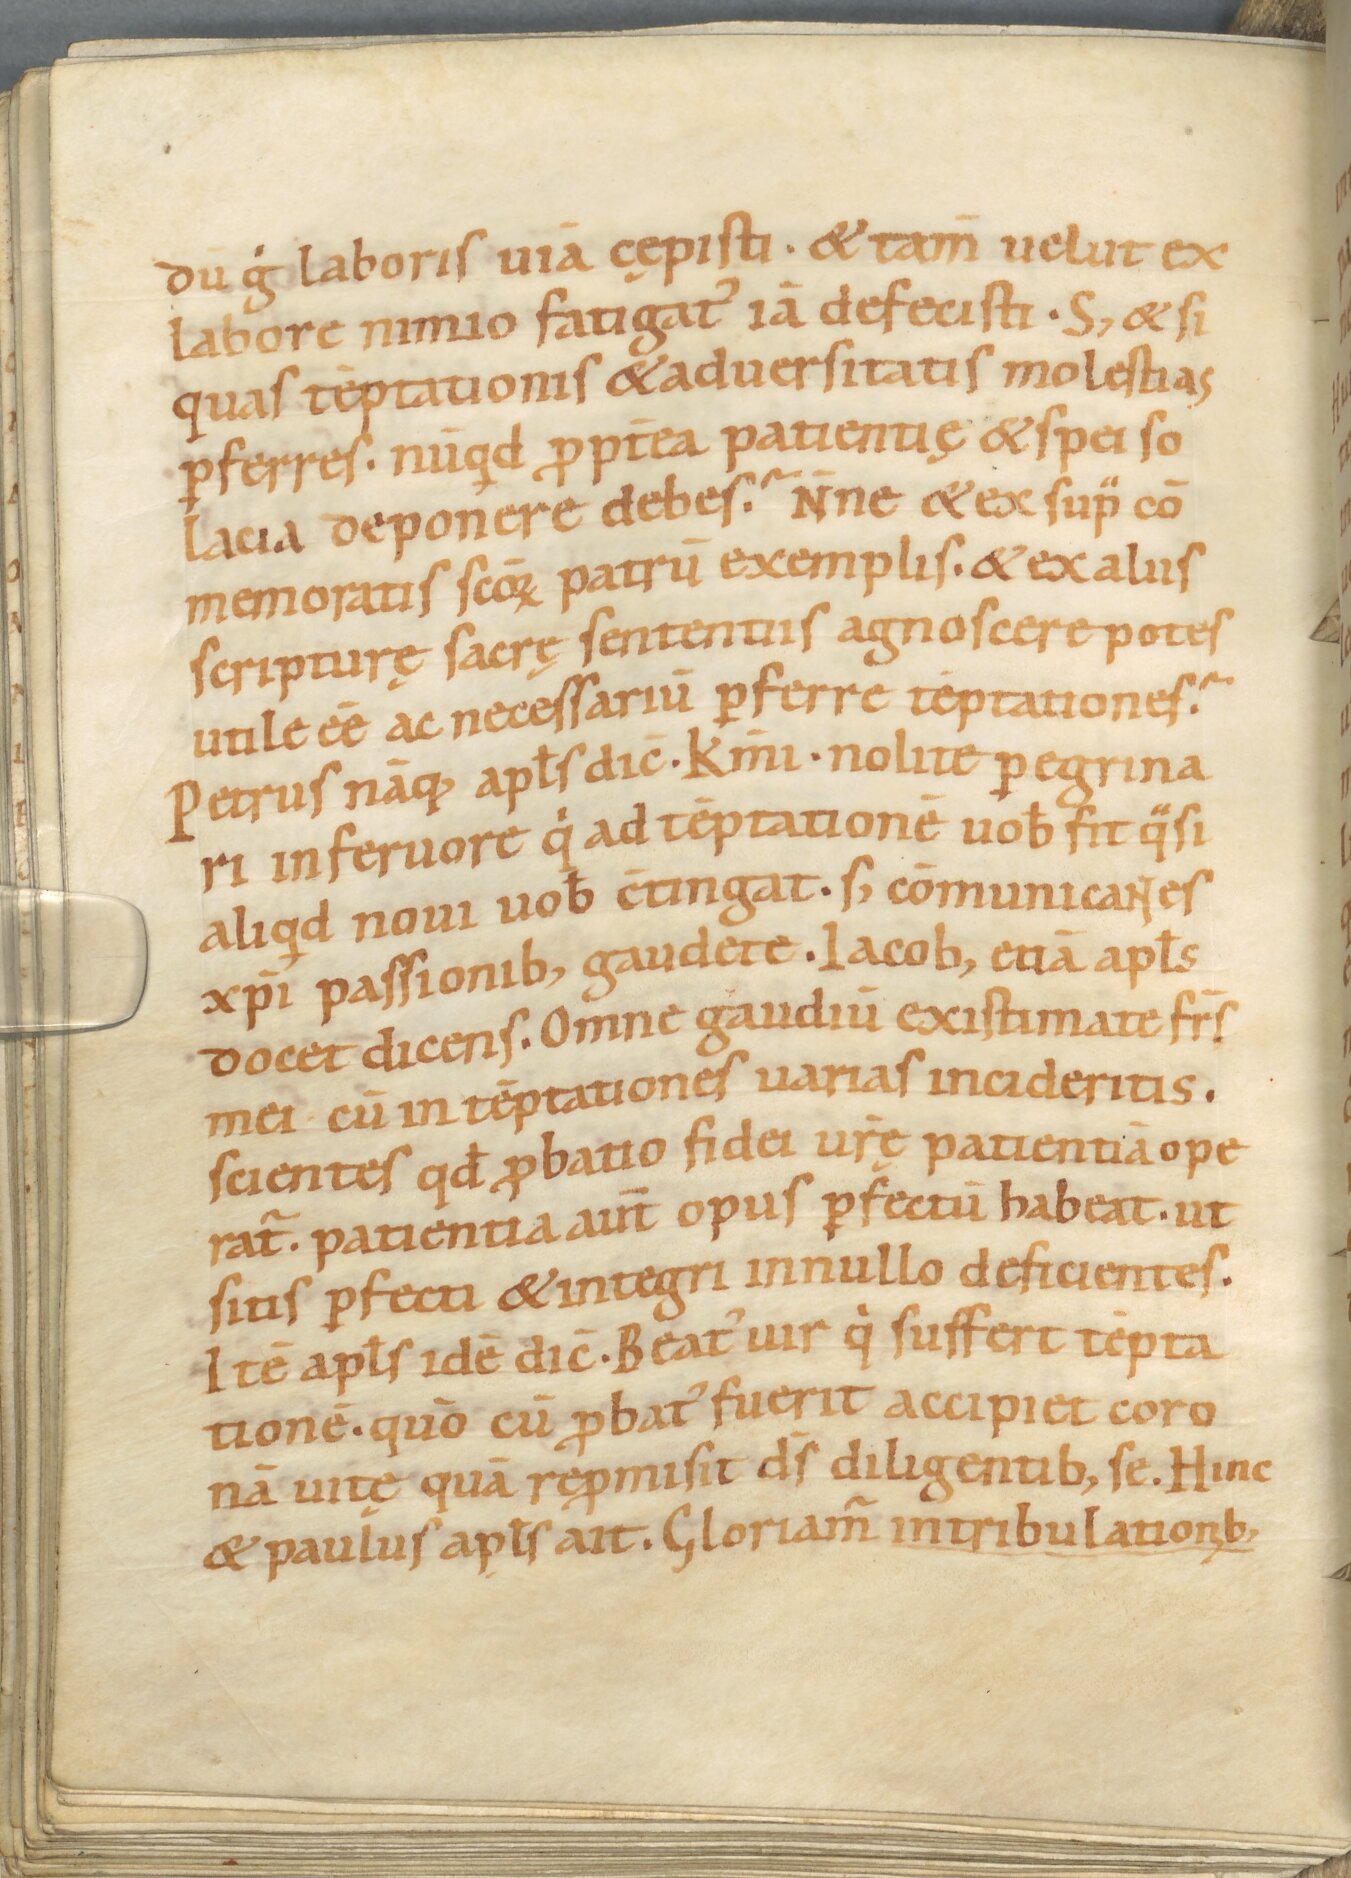 dū g̍ laboris uiā cępisti · & tam̄ uelut ex
labore nimio fatigat᾽ iā defecisti · S; & si
quas tēptationis & aduersitatis molestias
ꝑferres · nūqd ꝓpt̄ea patientię & spei so
lacia deponere debes? N̄ne & ex sup̈ cō
memoratis scōꝝ patrū exemplis · & ex aliis
scripturę sacrę sententiis agnoscere potes
utile eē̄ ac necessariū ꝑferre tēptationes?
Petrus nāq; apl̄s dic̄ · Km̄i · nolite ꝑegrina
ri in feruore q̍ ad tēptationē uob̄ fit q̈si
aliqd noui uob̄ c̄tingat · s; cōmunicantes
xp̄i passionib; gaudete · Iacob; etiā apl̄s
docet dicens · Omne gaudiū existimate fr̄s
mei · cū in tēptationes uarias incideritis ·
scientes qd̄ ꝓbatio fidei ur̄ę patientiā ope
rat᷉ · patientia aut̄ opus ꝑfectū habeat · ut
sitis ꝑfecti & integri in nullo deficientes ·
Itē apl̄s idē dic̄ · Beat᾽ uir q̍ suffert tēpta
tionē · quō cū ꝓbat᾽ fuerit accipiet coro
nā uitę quā reꝓmisit ds̄ diligentib; se · Hinc
& paulus apl̄s ait · Gloriam᷉ in tribulationib;